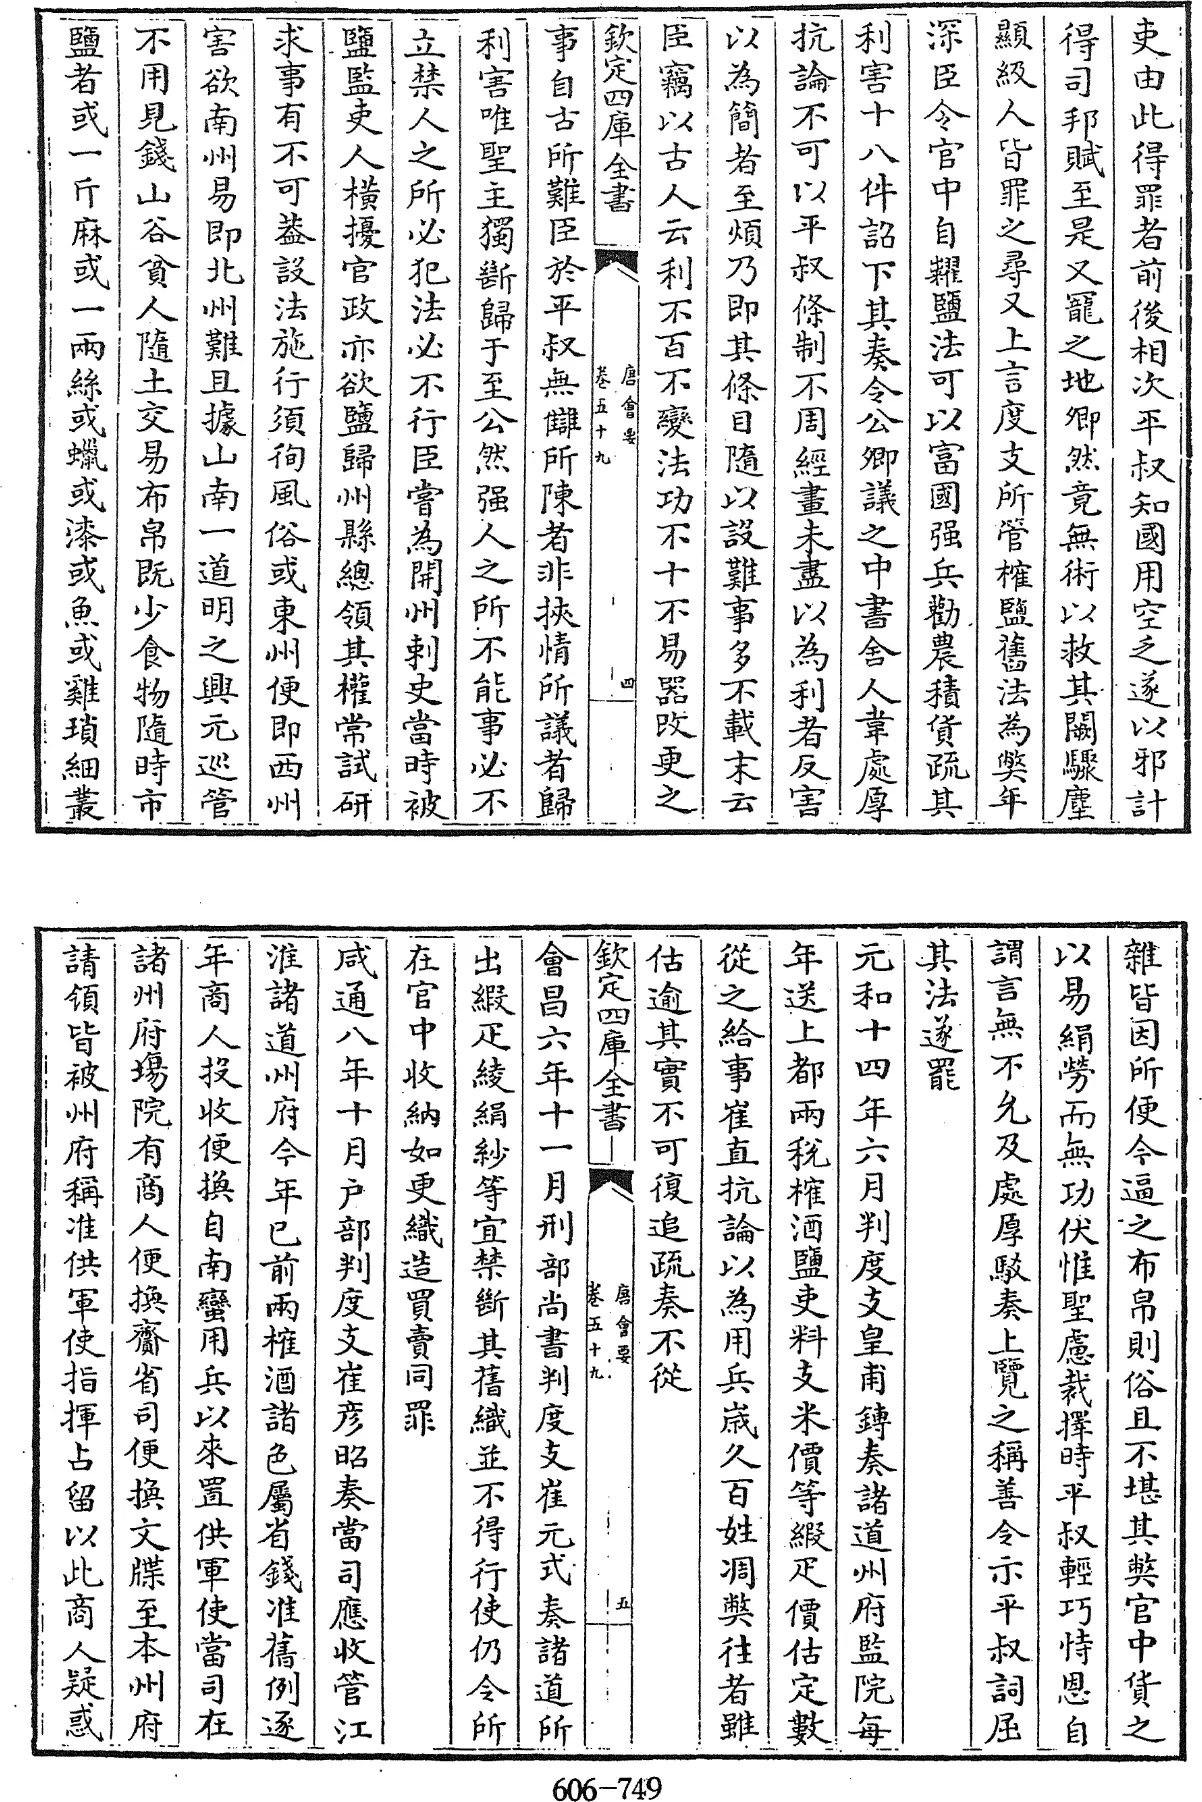 吏由此得罪者前後相次平叔知國用空乏遂以邪計
得司邦賦至是又寵之地卿然竟無術以救其闕驟塵
顯級人皆罪之尋又上言度支所管榷鹽舊法為獘年
深臣令官中自糶鹽法可以富國强兵勸農積貨疏其
利害十八件詔下其奏令公卿議之中書舍人韋處厚
抗論不可以平叔條制不周經畫未盡以為利者反害
以為簡者至煩乃即其條目隨以設難事多不載末云
臣竊以古人云利不百不變法功不十不易器改更之
欽定四庫全書
唐會要
卷五十九
四
事自古所難臣於平叔無讎所陳者非挾情所議者歸
利害唯聖主獨斷歸于至公然强人之所不能事必不
立禁人之所必犯法必不行臣嘗為開州刺史當時被
鹽監吏人橫擾官政亦欲鹽歸州縣總領其權常試研
求事有不可葢設法施行須徇風俗或東州便即西州
害欲南州易即北州難且據山南一道明之興元巡管
不用見錢山谷貧人隨土交易布帛既少食物隨時市
鹽者或一斤麻或一兩絲或蠟或漆或魚或雞瑣細叢
雜皆因所便今逼之布帛則俗且不堪其獘官中貨之
以易絹勞而無功伏惟聖慮裁擇時平叔輕巧恃恩自
謂言無不允及處厚駮奏上覽之稱善令示平叔詞屈
其法遂罷
元和十四年六月判度支皇甫鎛奏諸道州府監院每
年送上都兩稅榷酒鹽吏料支米價等緞疋價估定數
從之給事崔直抗論以為用兵嵗久百姓凋獘往者雖
估逾其實不可復追疏奏不從
欽定四庫全書
唐會要
卷五十九
五
會昌六年十一月刑部尚書判度支崔元式奏諸道所
出緞疋綾絹紗等宜禁斷其舊織並不得行使仍令所
在官中收納如更織造買賣同罪
咸通八年十月户部判度支崔彦昭奏當司應收管江
淮諸道州府今年已前兩榷酒諸色屬省錢准舊例逐
年商人投收便換自南蠻用兵以來置供軍使當司在
諸州府塲院有商人便換齎省司便換文牒至本州府
請領皆被州府稱准供軍使指揮占留以此商人疑惑
606-749